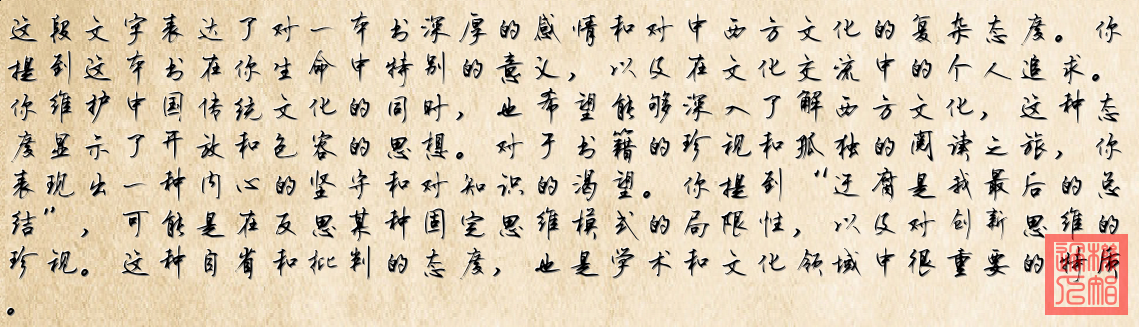 这段文字表达了对一本书深厚的感情和对中西方文化的复杂态度。你
提到这本书在你生命中特别的意义，以及在文化交流中的个人追求。
你维护中国传统文化的同时，也希望能够深入了解西方文化，这种态
度显示了开放和包容的思想。对于书籍的珍视和孤独的阅读之旅，你
表现出一种内心的坚守和对知识的渴望。你提到“迂腐是我最后的总
结”，可能是在反思某种固定思维模式的局限性，以及对创新思维的
珍视。这种自省和批判的态度，也是学术和文化领域中很重要的特质
。